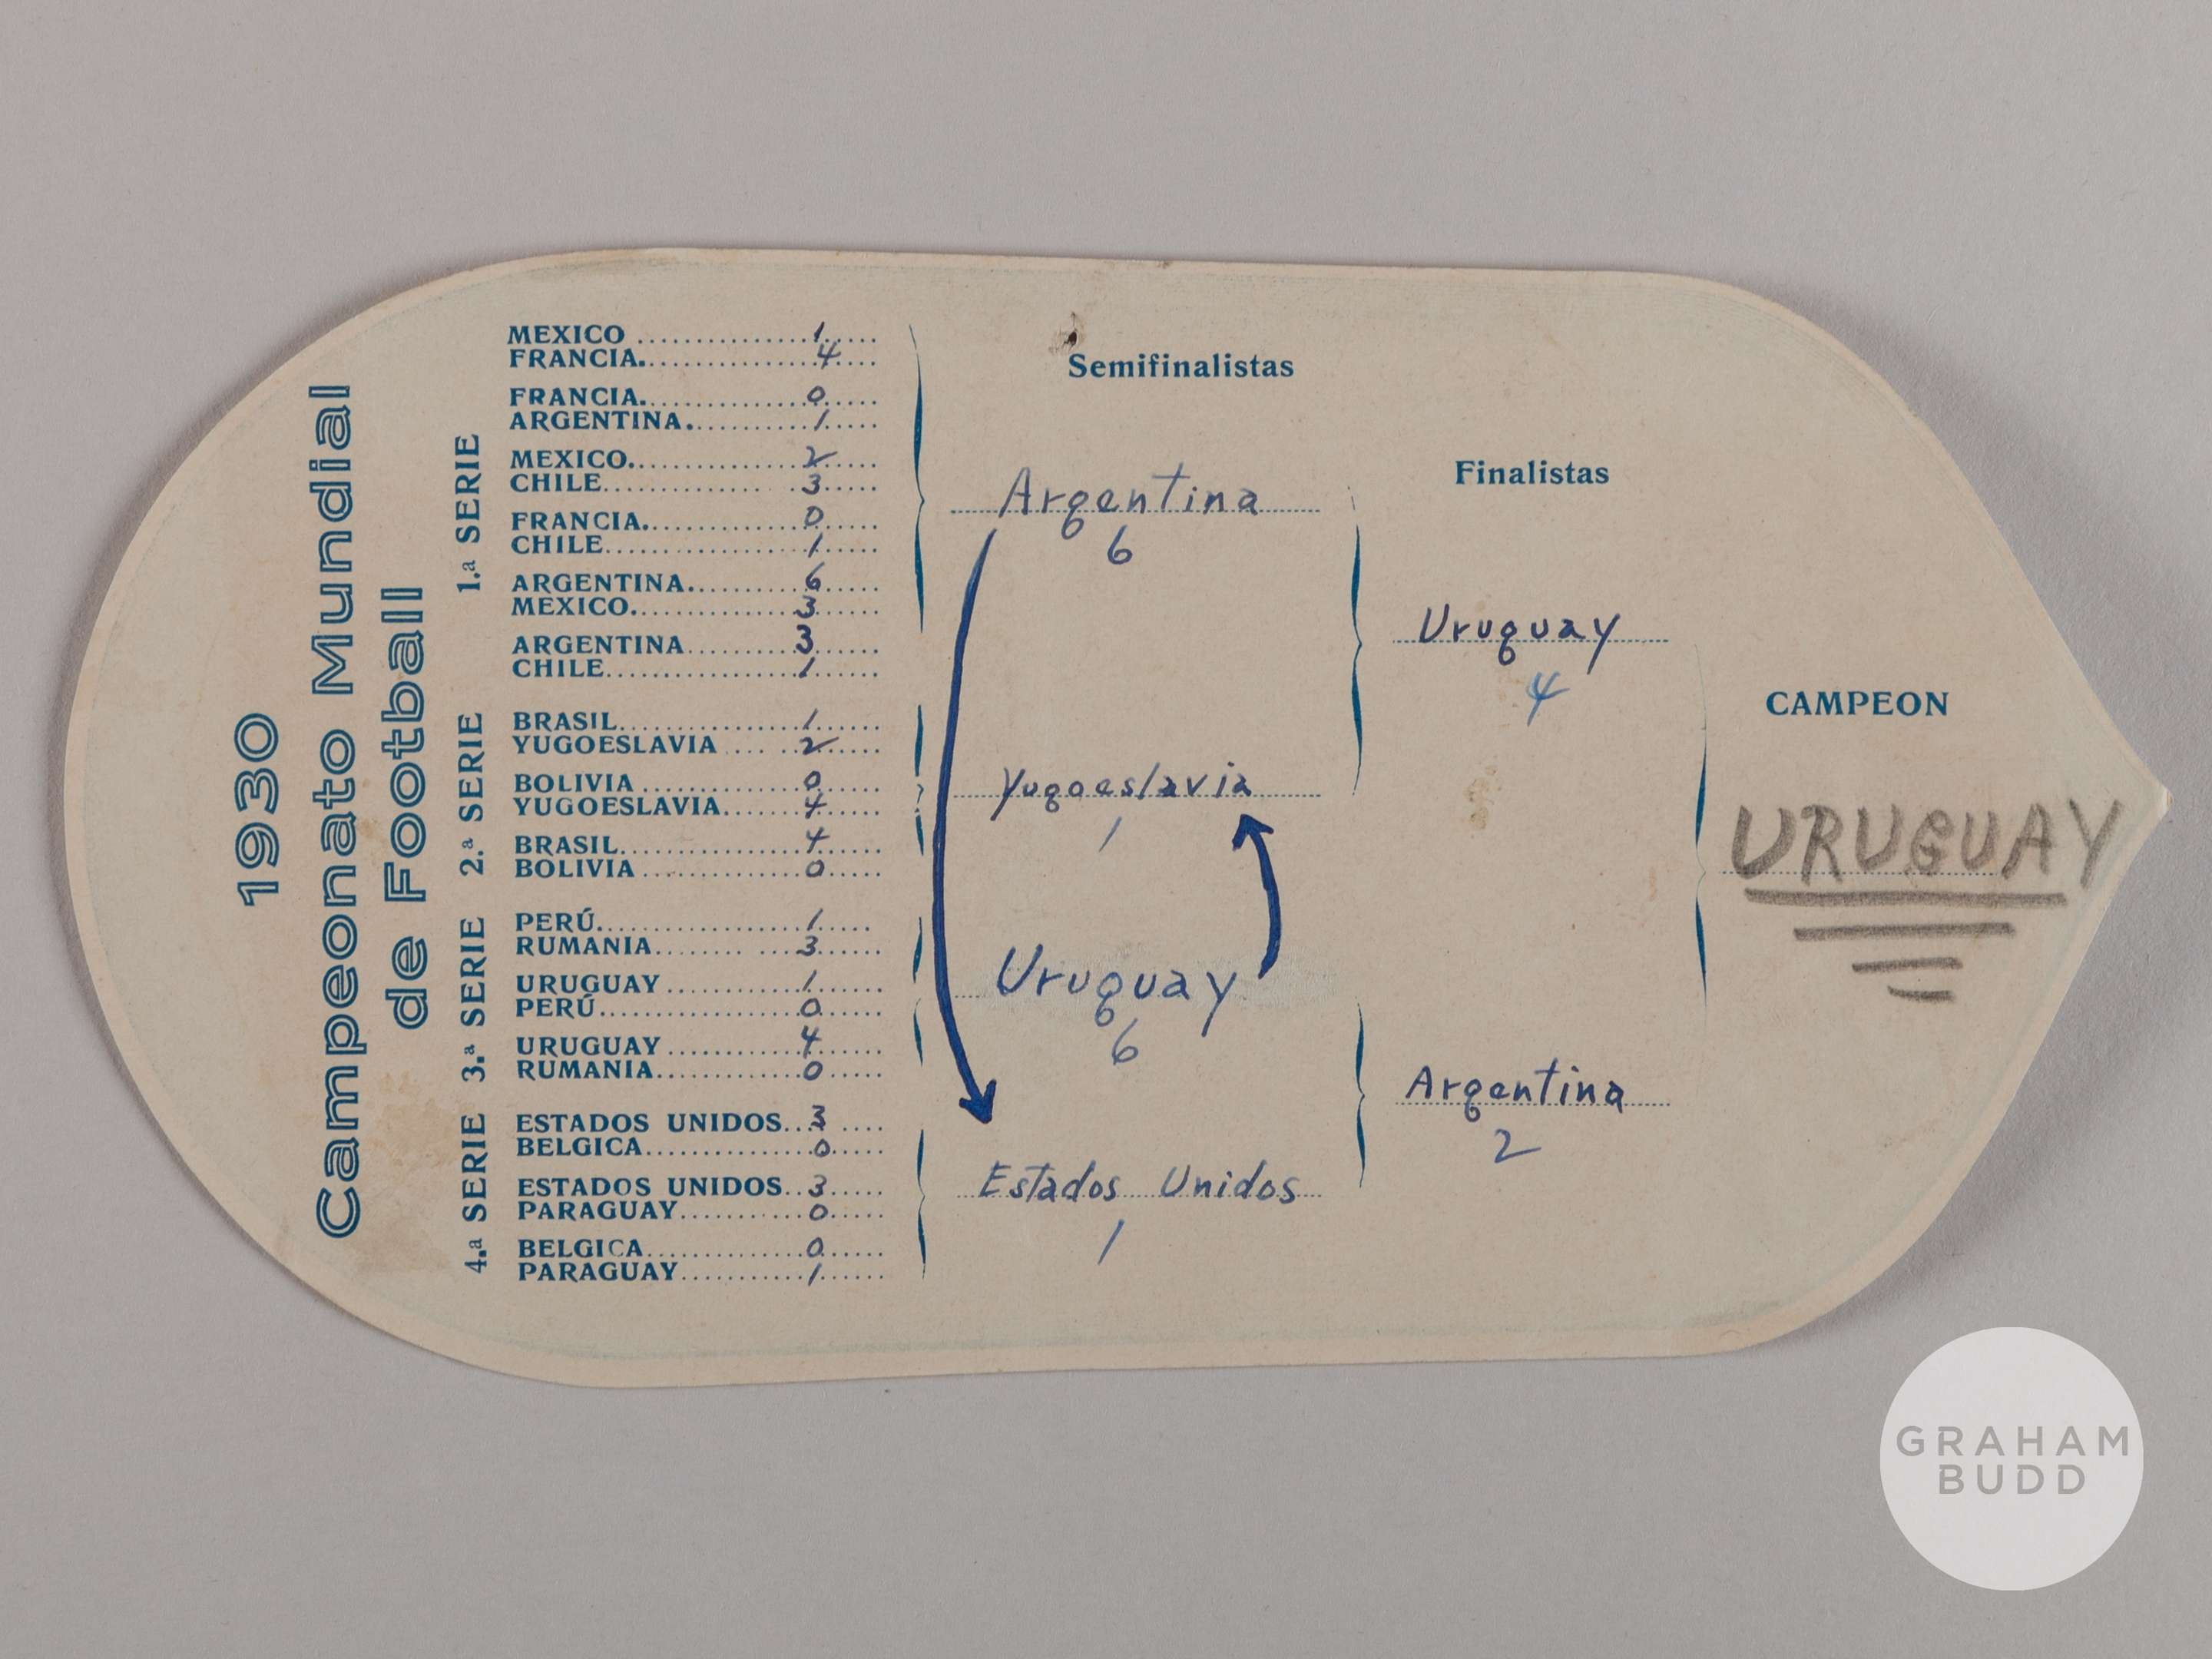 1930
Campeonato Mundial
de Football
1.ª SERIE
MEXICO ............... 1
FRANCIA............... 4
FRANCIA............... 0
ARGENTINA............ 1
MEXICO............... 2
CHILE............... 3
FRANCIA............... 0
CHILE............... 1
ARGENTINA............ 6
MEXICO............... 3
ARGENTINA............ 3
CHILE............... 1
2.ª SERIE
BRASIL............... 1
YUGOESLAVIA ......... 2
BOLIVIA ............... 0
YUGOESLAVIA......... 4
BRASIL............... 4
BOLIVIA ............... 0
3.ª SERIE
PERÚ............... 1
RUMANIA............... 3
URUGUAY ............... 1
PERÚ............... 0
URUGUAY ............... 4
RUMANIA............... 0
4.ª SERIE
ESTADOS UNIDOS... 3
BELGICA............... 0
ESTADOS UNIDOS... 3
PARAGUAY............ 0
BELGICA............... 0
PARAGUAY............ 1
Semifinalistas
Argentina
6
Yugoeslavia
1
Uruguay
6
Estados Unidos
1
Finalistas
Uruguay
4
Argentina
2
CAMPEON
URUGUAY
GRAHAM
BUDD